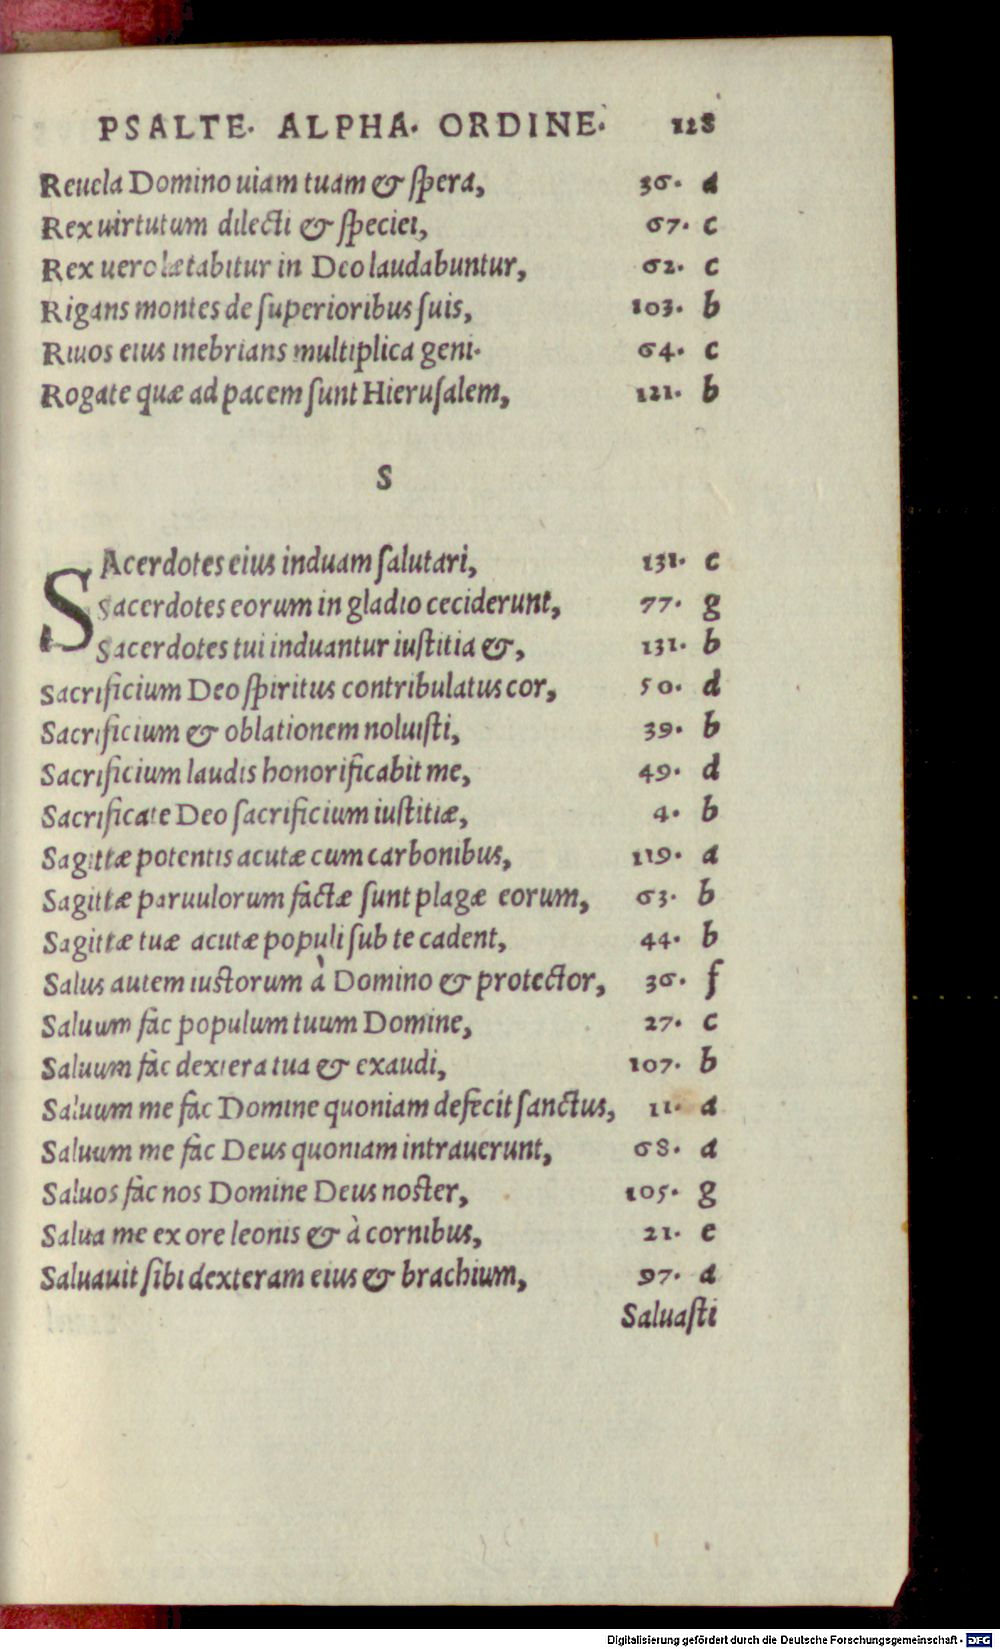 PSALTE. ALPHA. ORDINE. 128
Reuela Domino uiam tuam & ſpera, 36. a
Rex uirtutum dilecti & ſpeciei, 67. c
Rex uero lætabitur in Deo laudabuntur, 62. c
Rigans montes de ſuperioribus ſuis, 103. b
Riuos eius inebrians multiplica geni. 64. c
Rogate quæ ad pacem ſunt Hieruſalem, 121. b
S
SAcerdotes eius induam ſalutari, 131. c
Sacerdotes eorum in gladio ceciderunt, 77. g
Sacerdotes tui induantur iuſtitia &, 131. b
Sacrificium Deo ſpiritus contribulatus cor, 50. d
Sacrificium & oblationem noluiſti, 39. b
Sacrificium laudis honorificabit me, 49. d
Sacrificate Deo ſacrificium iuſtitiæ, 4. b
Sagittæ potentis acutæ cum carbonibus, 119. a
Sagittæ paruulorum factæ ſunt plagæ eorum, 63. b
Sagittæ tuæ acutæ populi ſub te cadent, 44. b
Salus autem iuſtorum à Domino & protector, 36. f
Saluum fac populum tuum Domine, 27. c
Saluum fac dextera tua & exaudi, 107. b
Saluum me fac Domine quoniam defecit ſanctus, 11. a
Saluum me fac Deus quoniam intrauerunt, 68. a
Saluos fac nos Domine Deus noſter, 105. g
Salua me ex ore leonis & à cornibus, 21. e
Saluauit ſibi dexteram eius & brachium, 97. a
Saluaſti
Digitalisierung gefördert durch die Deutsche Forschungsgemeinschaft - DFG